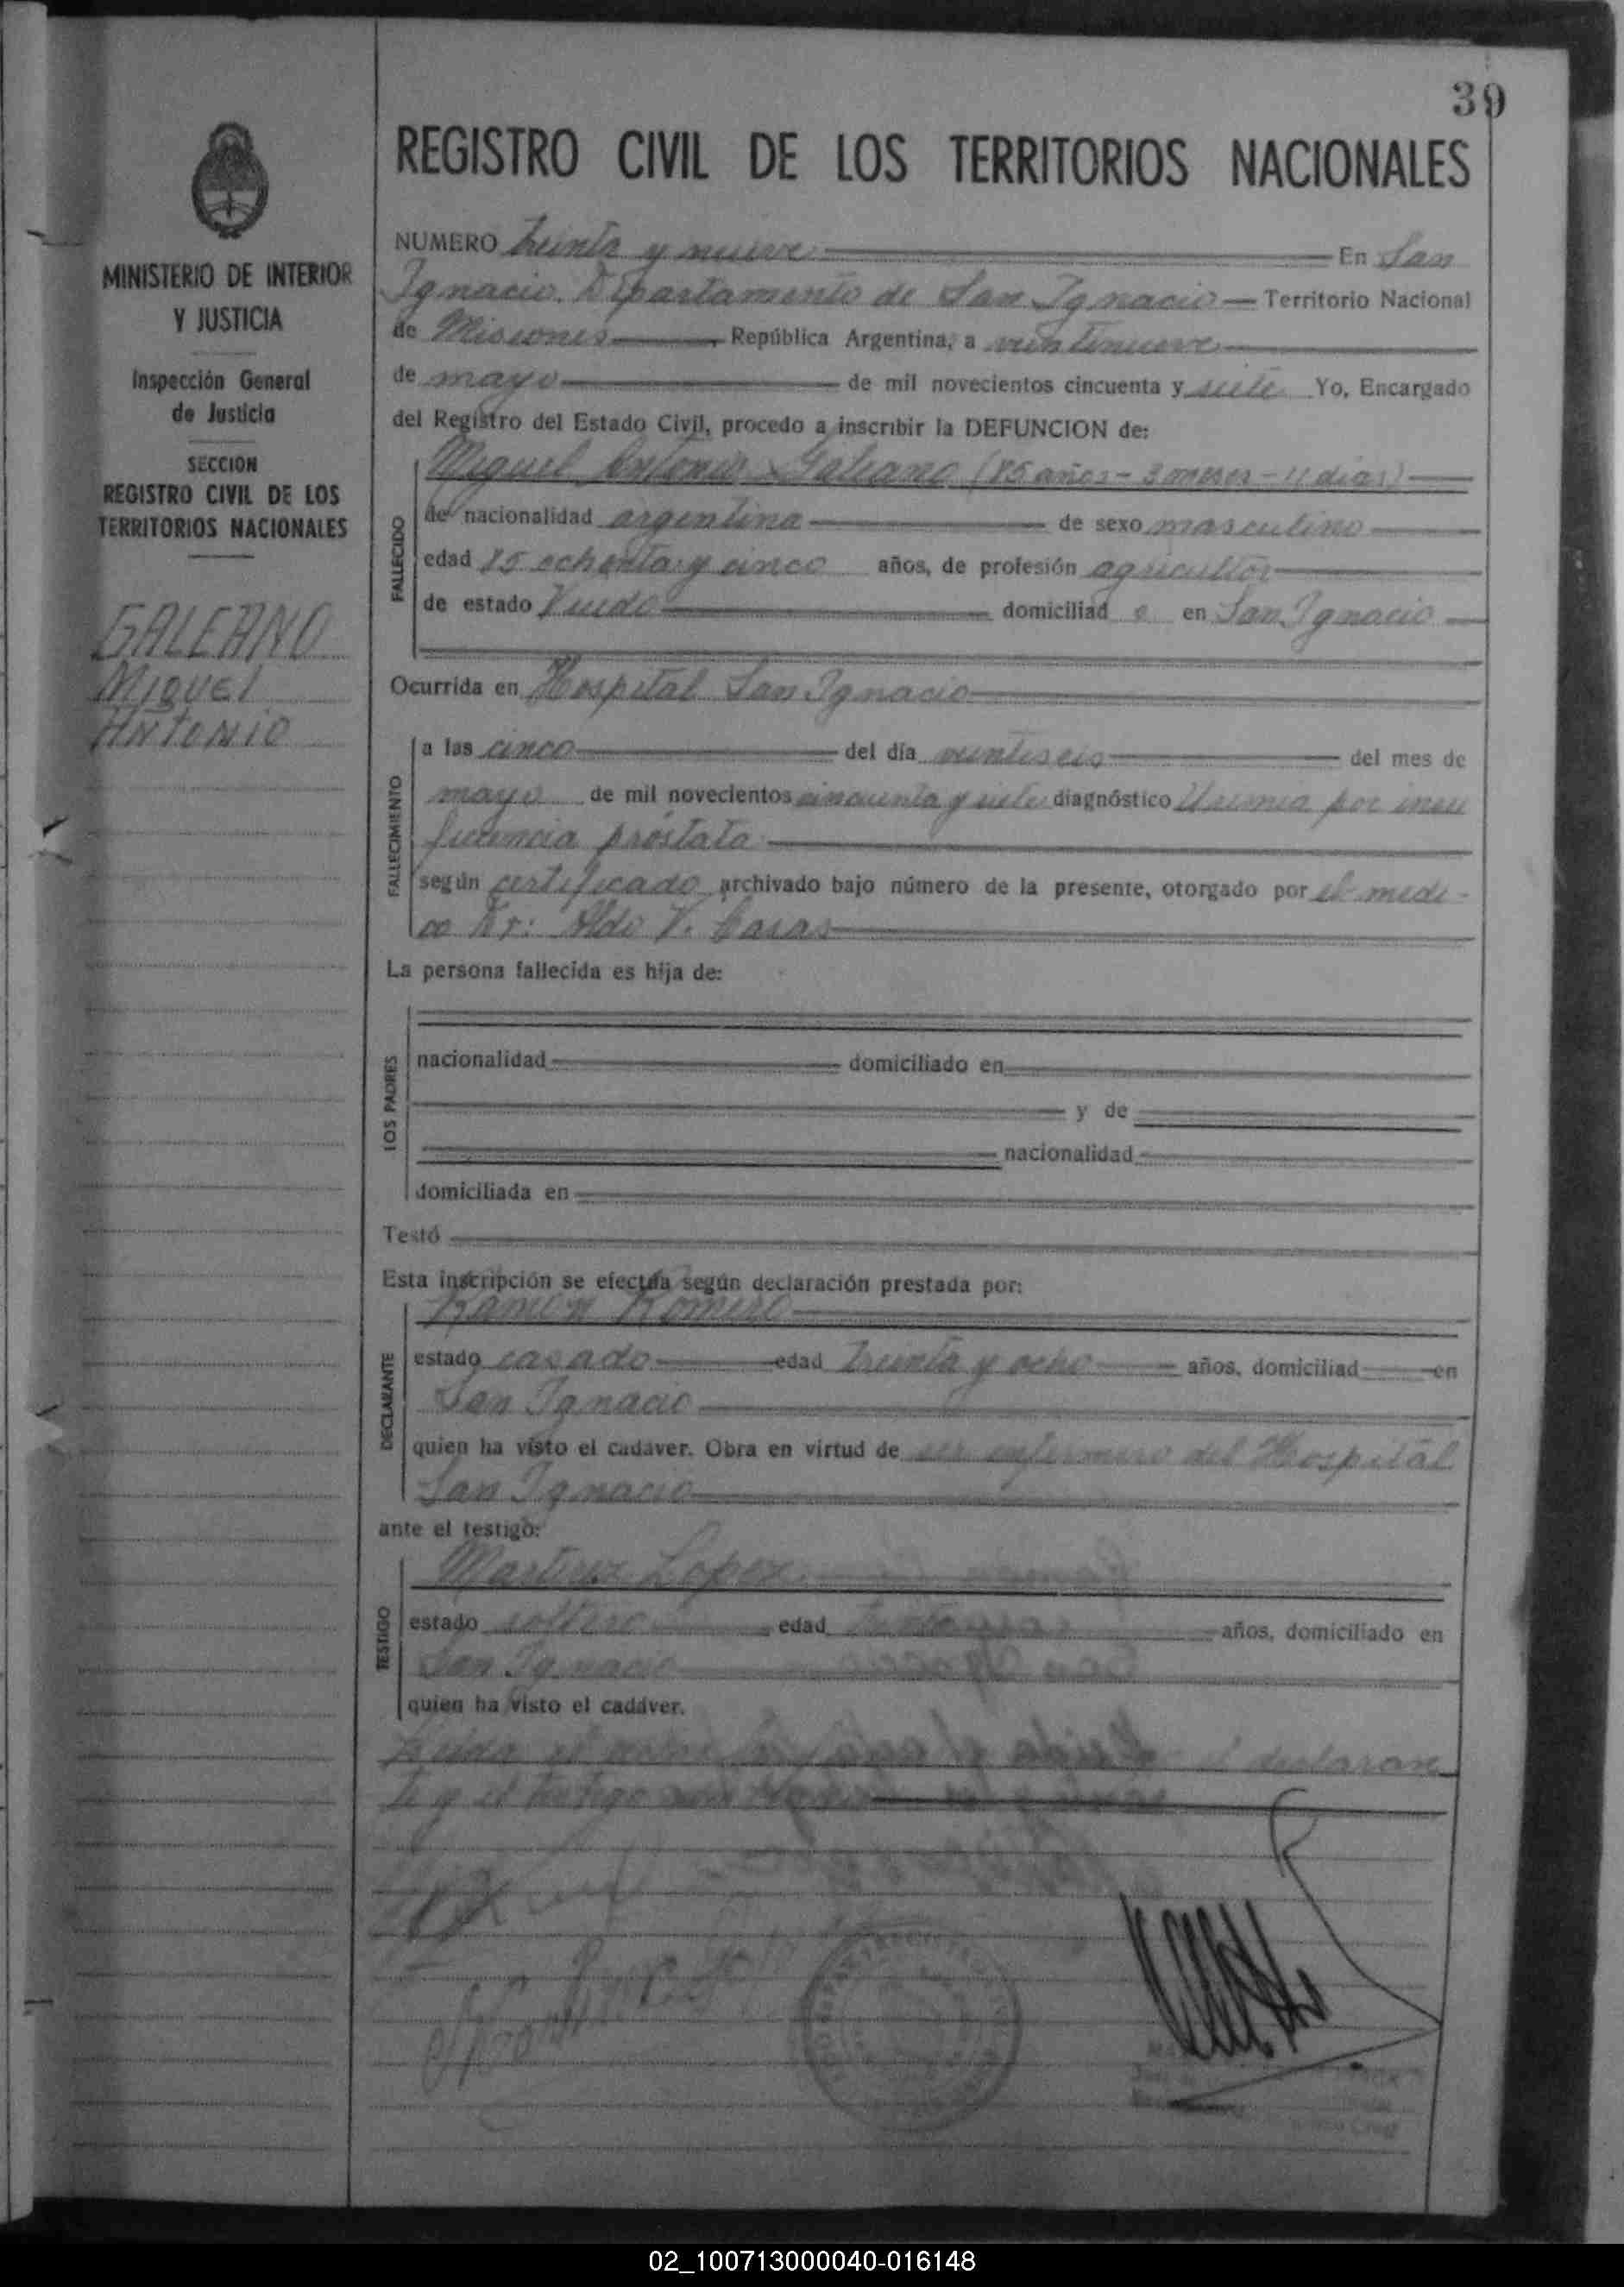 39
REGISTRO CIVIL DE LOS TERRITORIOS NACIONALES
MINISTERIO DE INTERIOR
Y JUSTICIA
Inspección General
de Justicia
SECCION
REGISTRO CIVIL DE LOS
TERRITORIOS NACIONALES
GALEANO
MIGUEl
ANTONIO
NUMERO treinta y nueve En San
Ignacio Departamento de San Ignacio Territorio Nacional
de Misiones República Argentina, a veintinueve
de mayo de mil novecientos cincuenta y siete Yo, Encargado
del Registro del Estado Civil, procedo a inscribir la DEFUNCION de:
Miguel Antonio Galeano (85 años - 3 meses - 11 dias)
FALLECIDO
de nacionalidad argentina de sexo masculino
edad 85 ochenta y cinco años, de profesión agricultor
de estado Viudo domiciliad o en San Ignacio
Ocurrida en Hospital San Ignacio
FALLECIMIENTO
a las cinco del día veintiseis del mes de
mayo de mil novecientos cincuenta y siete diagnóstico Uremia por insu
ficiencia próstata
según certificado archivado bajo número de la presente, otorgado por el medi-
co Dr: Aldo V. Casas
La persona fallecida es hija de:
LOS PADRES
nacionalidad domiciliado en
y de
nacionalidad
domiciliada en
Testó
Esta inscripción se efectúa según declaración prestada por:
Ramón Romero
DECLARANTE
estado casado edad treinta y ocho años, domiciliad en
San Ignacio
quien ha visto el cadáver. Obra en virtud de ser enfermero del Hospital
San Ignacio
ante el testigo:
Lopez
TESTIGO
estado soltero edad años, domiciliado en
San Ignacio
quien ha visto el cadáver.
Leida el acta el declaran
te y el testigo
02_100713000040-016148